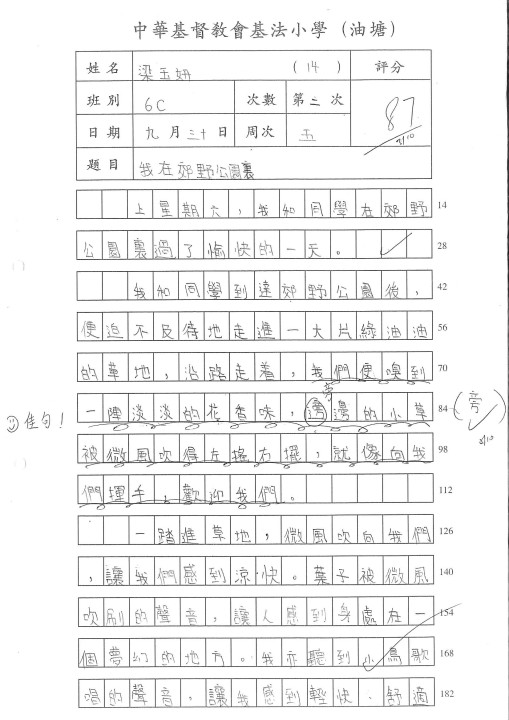 中華基督教會基法小學（油塘）
姓名 梁玉妍 (14) 評分
班別 6C 次數 第二次 87
日期 九月三十日 周次 五 2/10
題目 我在郊野公園裏
上星期六，我和同學在郊野 14
公園裏過了愉快的一天。 28
我和同學到達郊野公園後， 42
便迫不及待地走進一大片綠油油 56
的草地，沿路走着，我們便嗅到 70
旁
一陣淡淡的花香味，邊的小草 84 (旁)
佳句！
被微風吹得左搖右擺，就像向我 98
們揮手，歡迎我們。 112
一踏進草地，微風吹向我們 126
，讓我們感到涼快。葉子被微風 140
吹刷的聲音，讓人感到身處在一 154
個夢幻的地方。我亦聽到小鳥歌 168
唱的聲音，讓我感到輕快、舒適 182